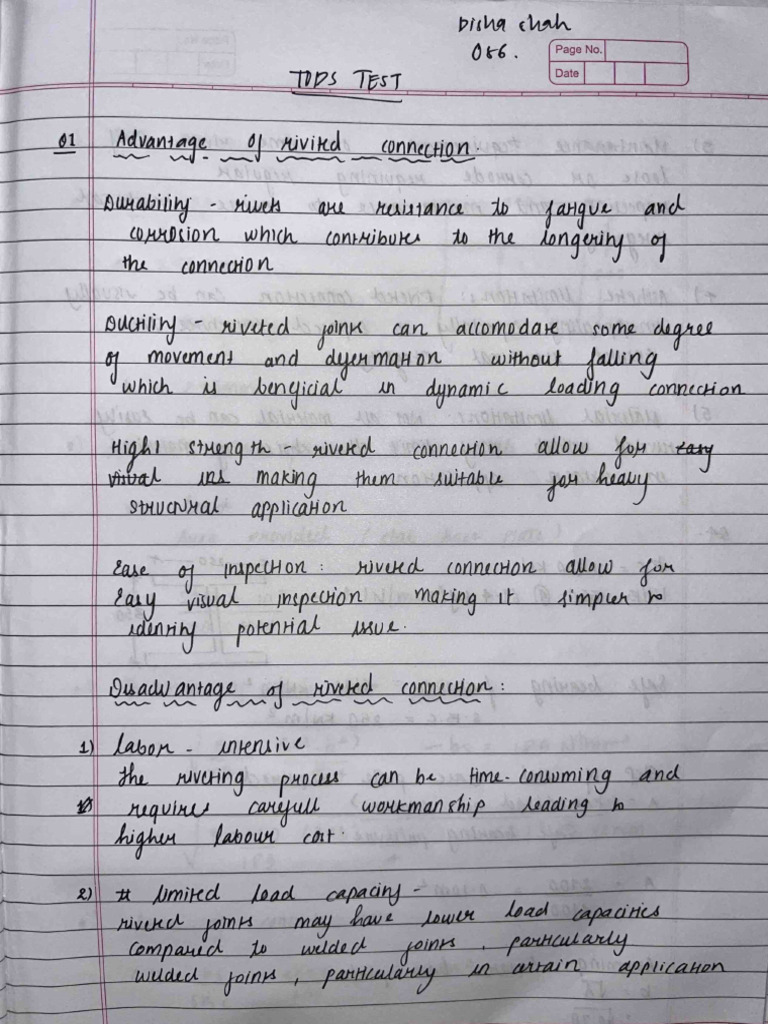 Disha shah
056.
Page No.
Date
TODS TEST
Q1 Advantage of rivited connection.
Durability - rivets are resistance to fatigue and
corrosion which contributes to the longerity of
the connection
Ductility - riveted joints can accomodate some degree
of movement and dyermation without falling
which is benificial in dynamic loading connection
High strength - riveted connection allow for easy
visual ins making them suitable for heavy
structural application
Ease of inspection : riveted connection allow for
easy visual inspection making it simpler to
identity potential issue.
Disadvantage of riveted connection :
1) labor - intensive
the riveting process can be time-consuming and
requires carefull workmanship leading to
higher labour cost.
2) limited load capacity -
riveted joints may have lower load capacities
compared to welded joints, particularly
welded joints, particularly in artain application